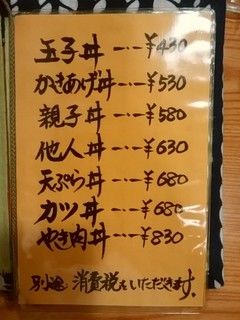 玉子丼 ---- ¥430
かきあげ丼 --- ¥530
親子丼 ---- ¥580
他人丼 ---- ¥630
天ぷら丼 --- ¥680
カツ丼 ---- ¥680
やき肉丼 --- ¥830
別途、消費税をいただきます。